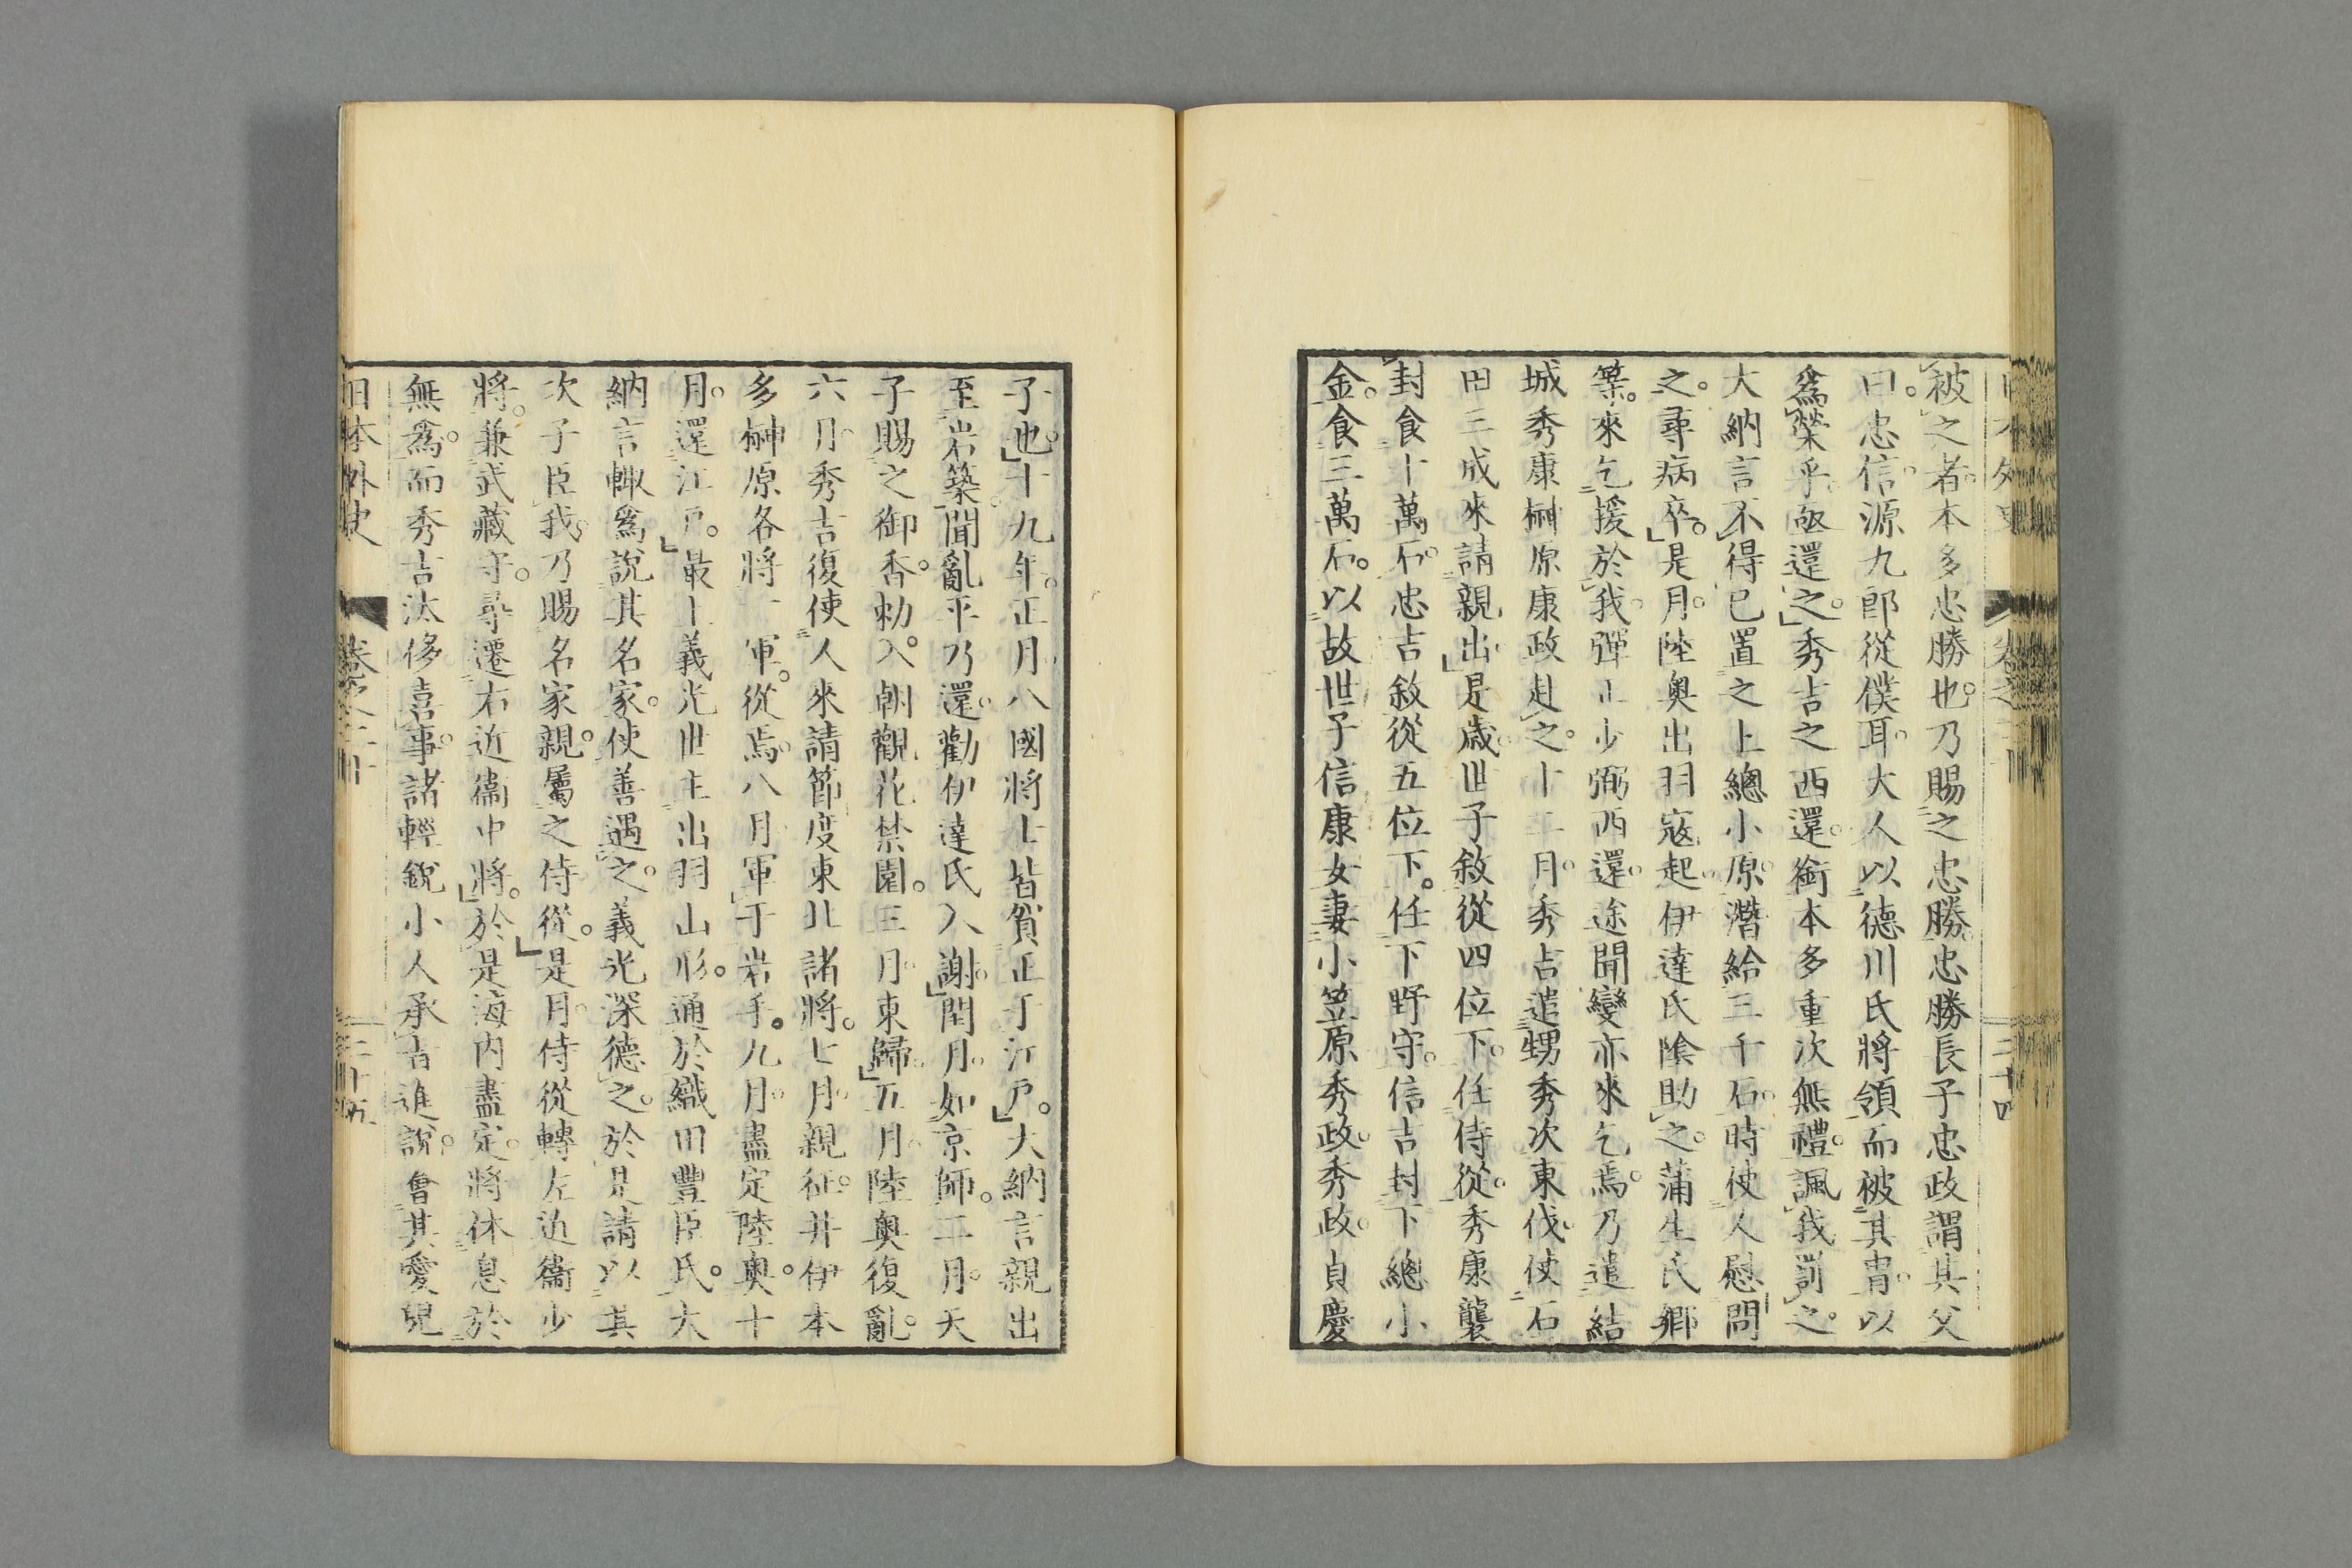 被之者。本多忠勝也。乃賜之忠勝。忠勝長子忠政謂其父
曰。忠信源九郎從僕耳。大人以德川氏將領而被其冑。以
爲榮乎。亟還之。秀吉之西還。銜本多重次無禮。諷我罰之。
大納言不得已置之上總小原。潛給三千石。時使人慰問
之。尋病卒。是月。陸奧出羽寇起。伊達氏陰助之。蒲生氏鄉
等。來乞援於我。彈正少弼西還。途聞變亦來乞焉。乃遣結
城秀康榊原康政赴之。十二月。秀吉遣甥秀次東伐。使石
田三成來請親出。是歲。世子敘從四位下。任侍從。秀康襲
封食十萬石。忠吉敘從五位下。任下野守。信吉封下總小
金。食三萬石。以故世子信康女妻小笠原秀政。秀政。貞慶
子也。十九年。正月。八國將士皆賀正于江戶。大納言親出
至岩築。聞亂平乃還。勸伊達氏入謝。閏月。如京師。二月。天
子賜之御香。勅入朝觀花禁園。三月。東歸。五月。陸奧復亂。
六月。秀吉復使人來請節度東北諸將。七月。親征。井伊本
多榊原各將一軍。從焉。八月。軍于岩手。九月。盡定陸奧。十
月。還江戶。最上義光世主出羽山形。通於織田豐臣氏。大
納言輙爲說其名家。使善遇之。義光深德之。於是請以其
次子臣我。乃賜名家親。屬之侍從。是月。侍從轉左近衞少
將。兼武藏守。尋遷右近衞中將。於是海內盡定。將休息於
無爲。而秀吉汰侈喜事。諸輕銳小人承旨進說。會其愛兒
日本外史 卷之二十 二十五